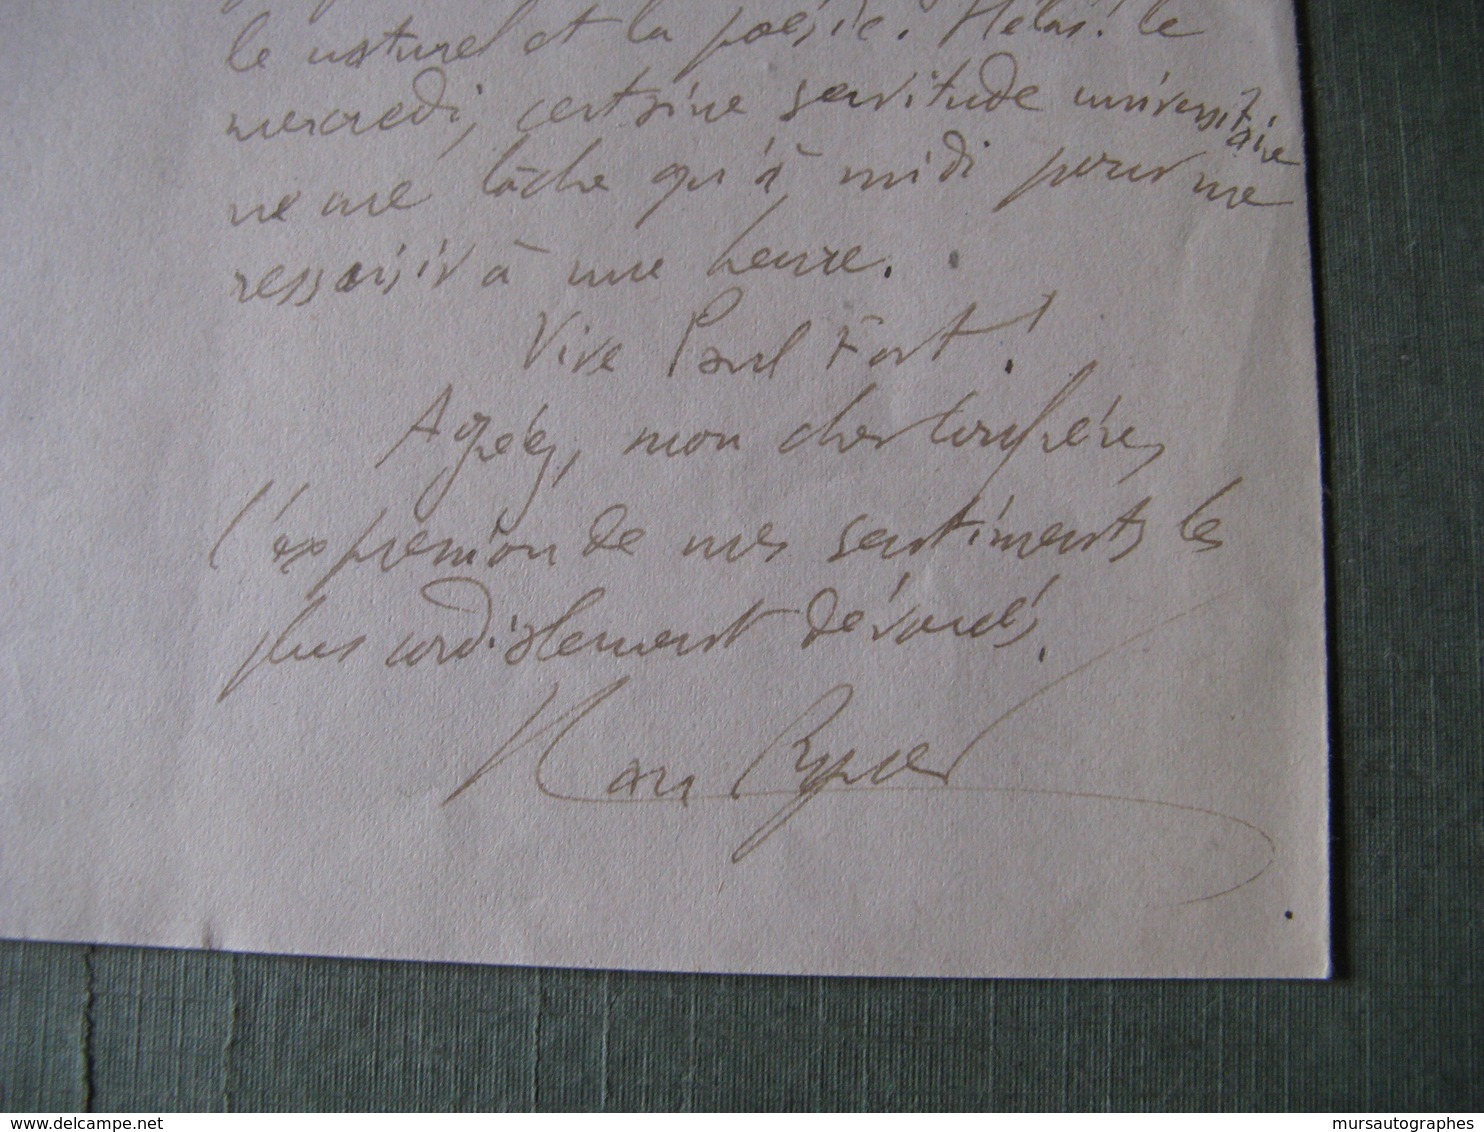 le naturel et la poésie. Hélas! le
mercredi, certaine servitude universitaire
ne me lâche qu'à midi pour me
ressaisir à une heure.
Vive Paul Fort!
Agréez, mon cher Confrère,
l'expression de mes sentiments les
plus cordialement dévoués.
Han Ryner
www.delcampe.net
mursautographes